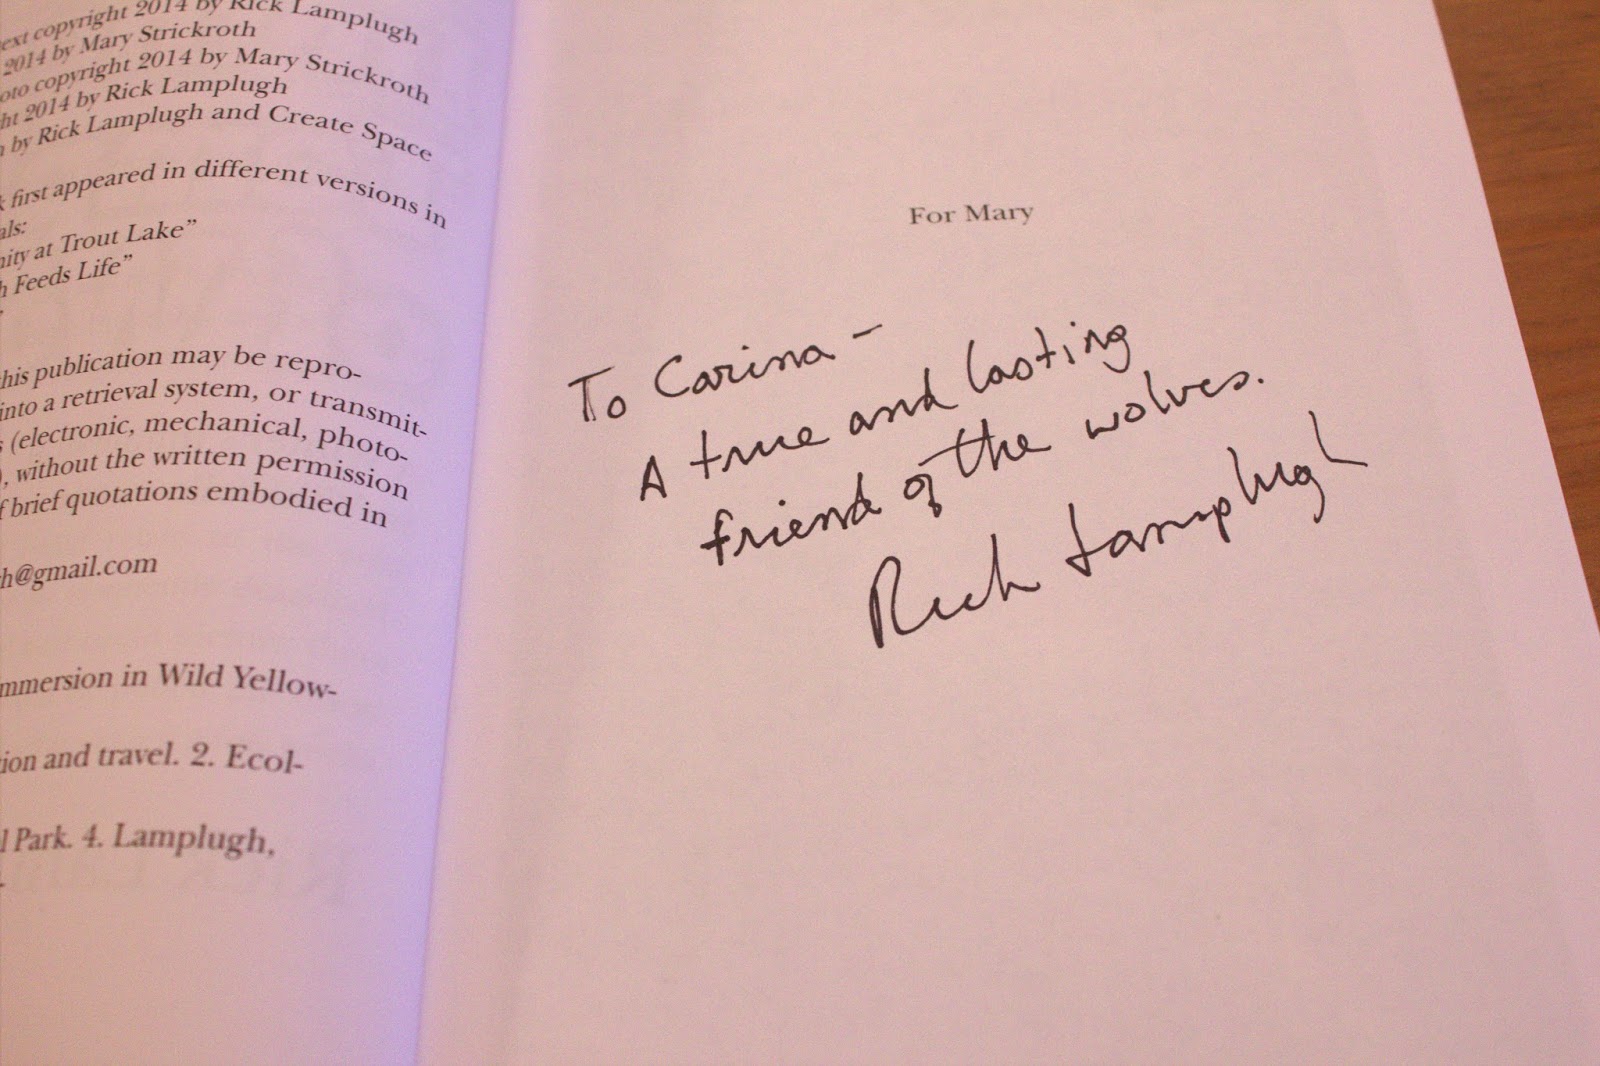 text copyright 2014 by Rick Lamplugh
2014 by Mary Strickroth
oto copyright 2014 by Mary Strickroth
ht 2014 by Rick Lamplugh
by Rick Lamplugh and Create Space
first appeared in different versions in
als:
nity at Trout Lake”
h Feeds Life”
his publication may be repro-
into a retrieval system, or transmit-
s (electronic, mechanical, photo-
), without the written permission
f brief quotations embodied in
h@gmail.com
mmersion in Wild Yellow-
ion and travel. 2. Ecol-
l Park. 4. Lamplugh,
For Mary
To Carina –
A true and lasting
friend of the wolves.
Rick Lamplugh